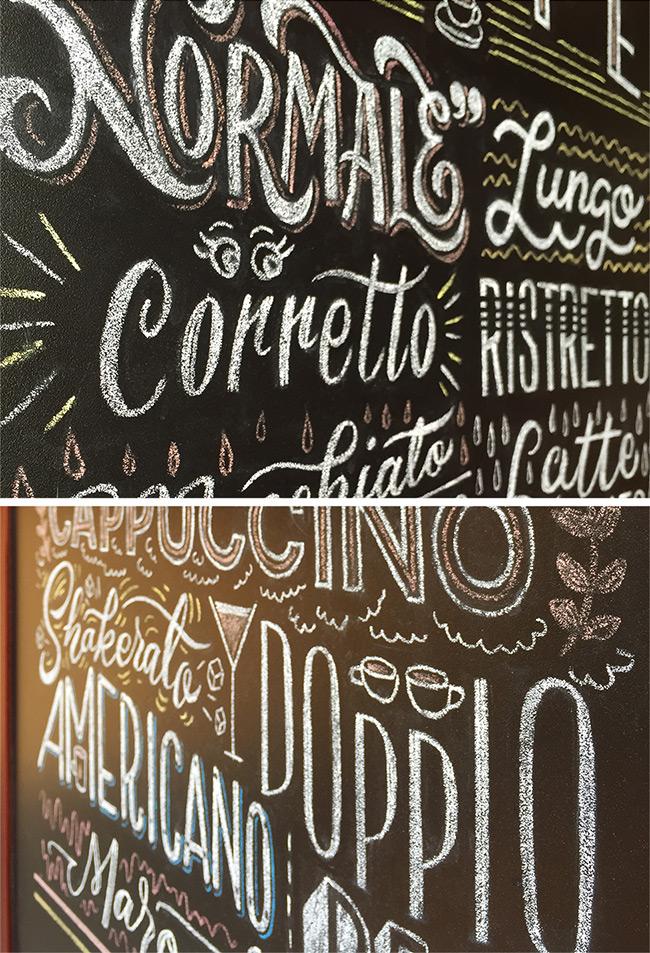 NORMALE"
Lungo
Corretto
RISTRETTO
Latte
CAPPUCCINO
Shakerato
AMERICANO
DOPPIO